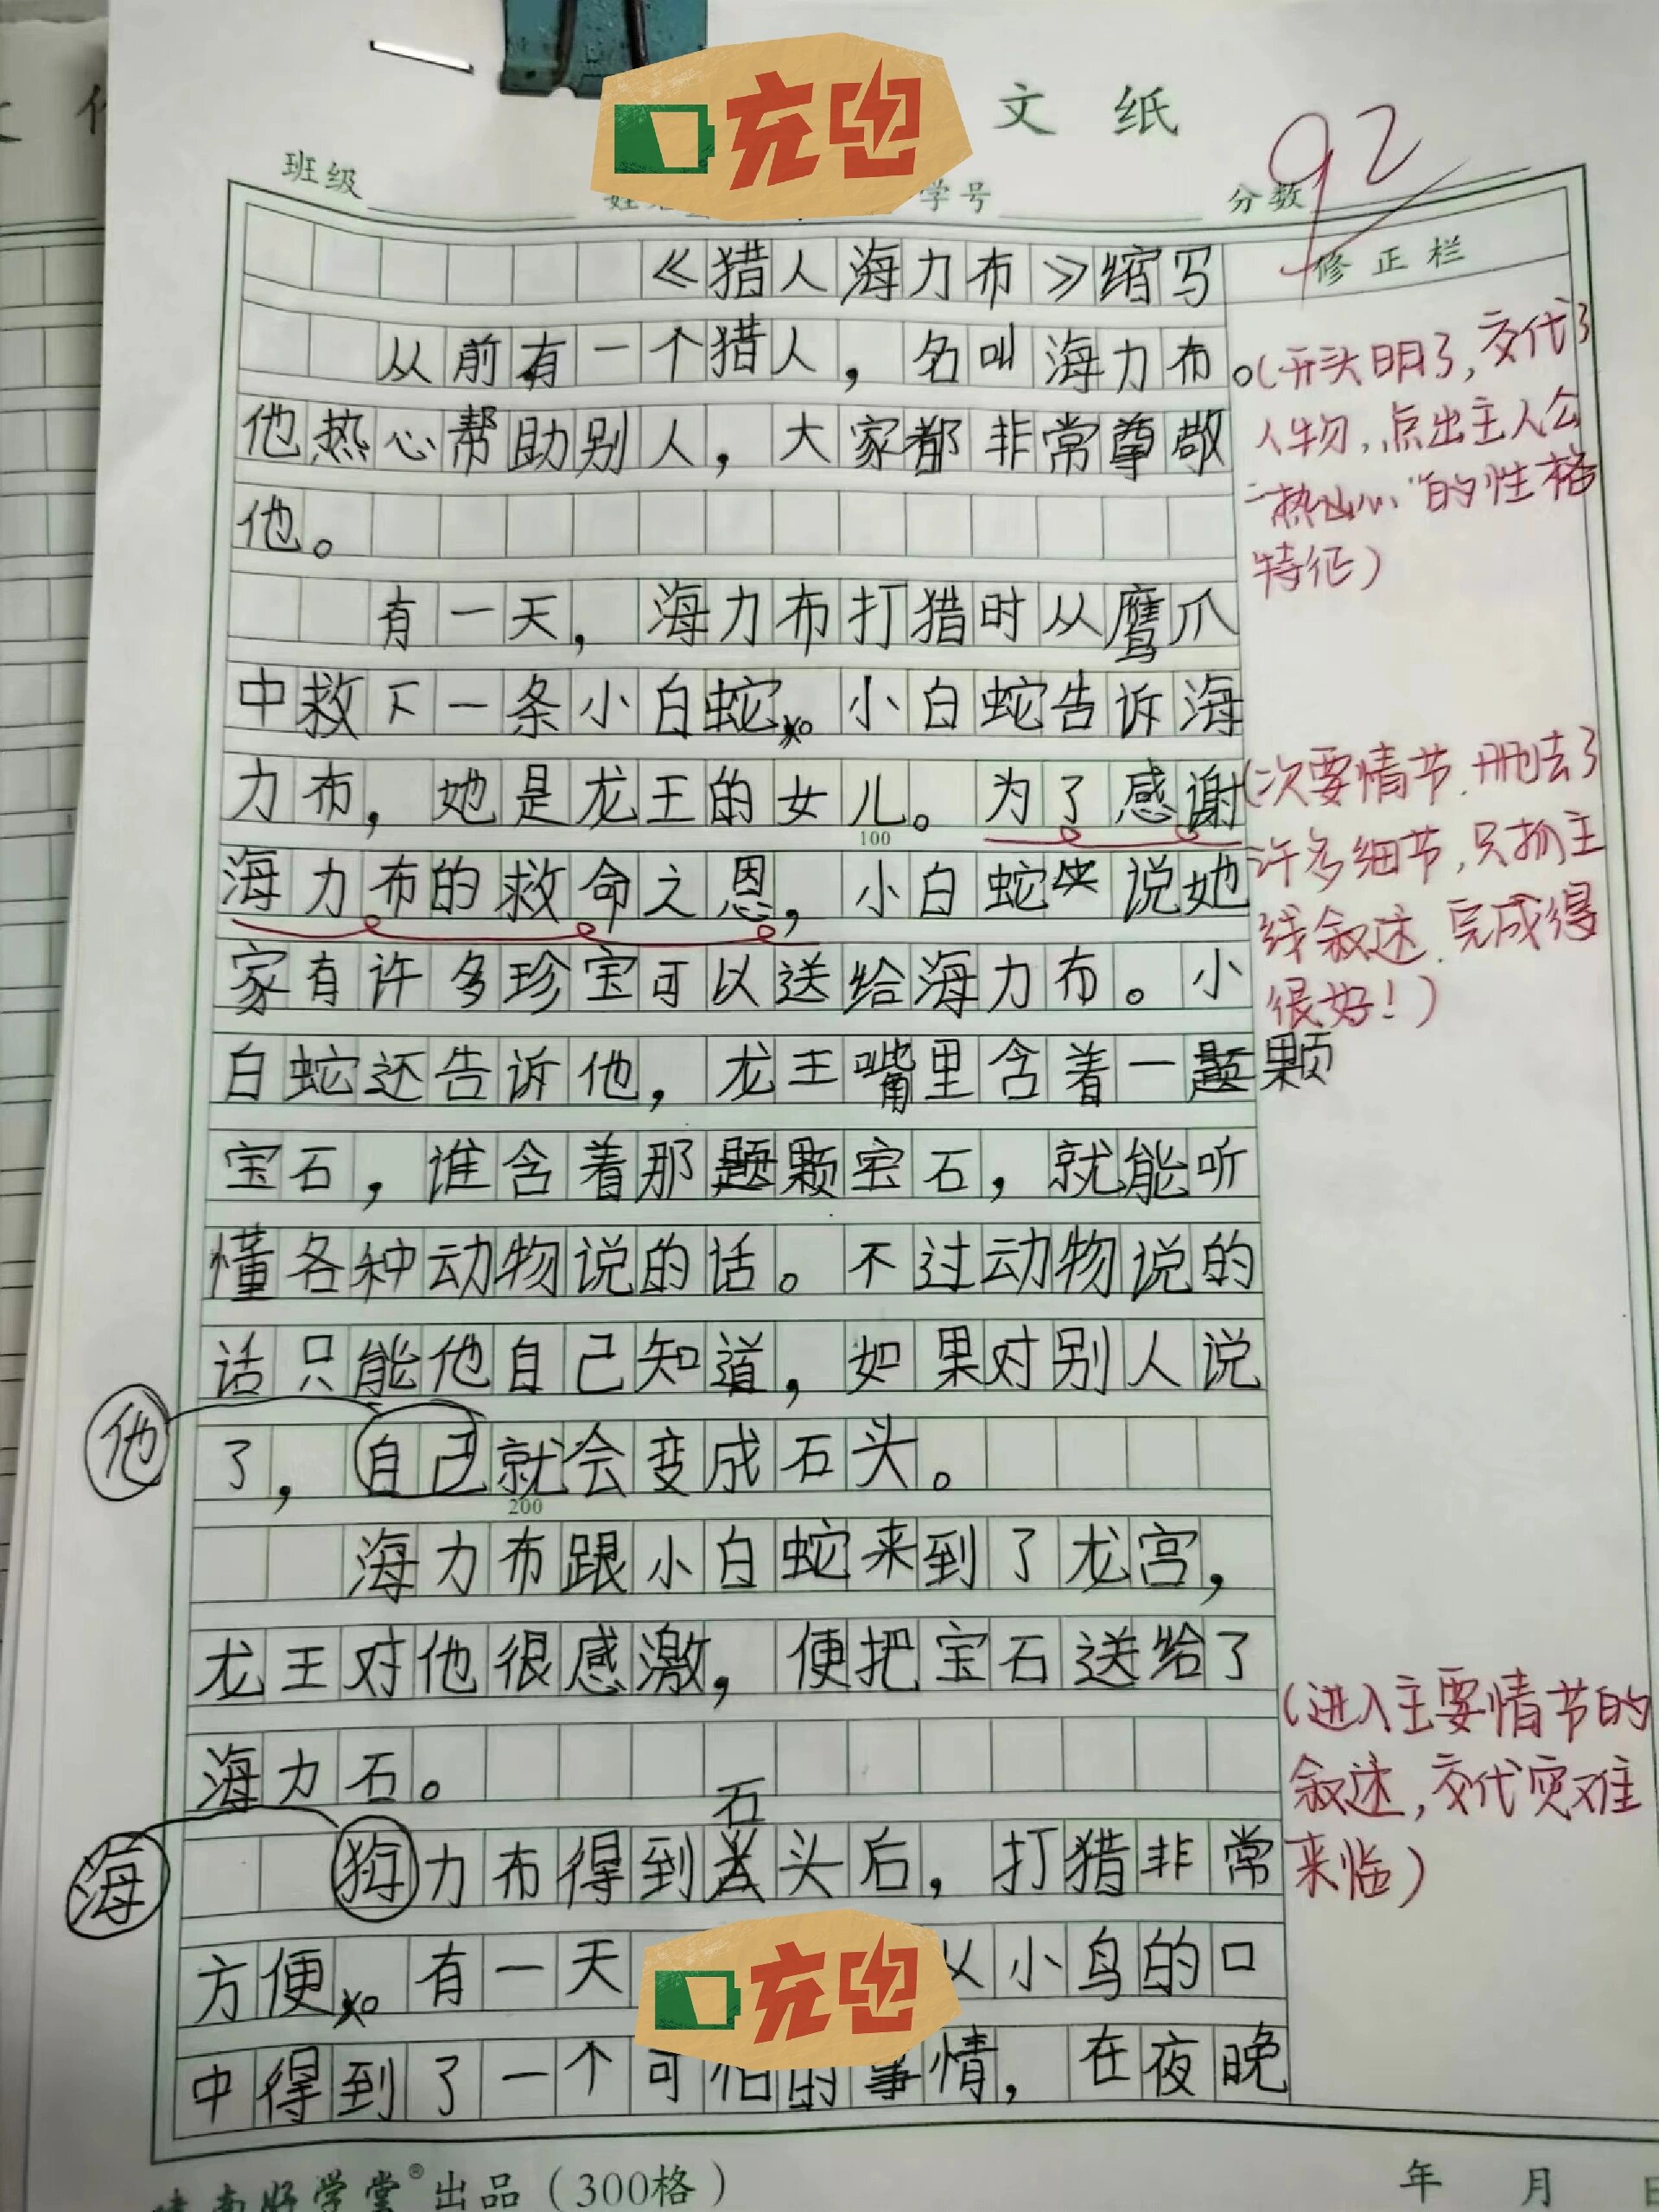 充电
文纸
班级 学号 分数 92
修正栏
《猎人海力布》缩写
从前有一个猎人，名叫海力布。
他热心帮助别人，大家都非常尊敬
他。
(开头明了，交代了
人物，点出主人公
“热心”的性格
特征)
有一天，海力布打猎时从鹰爪
中救下一条小白蛇。小白蛇告诉海
力布，她是龙王的女儿。为了感谢
海力布的救命之恩，小白蛇说她
家有许多珍宝可以送给海力布。小
白蛇还告诉他，龙王嘴里含着一颗
宝石，谁含着那颗宝石，就能听
懂各种动物说的话。不过动物说的
话只能他自己知道，如果对别人说
了，自己就会变成石头。
他
(次要情节，删去了
许多细节，只抓主
线叙述，完成得
很好！)
海力布跟小白蛇来到了龙宫，
龙王对他很感激，便把宝石送给了
海力石。
力布得到石头后，打猎非常
海
方便。有一天 从小鸟的口
中得到了一个可怕的事情，在夜晚
(进入主要情节的
叙述，交代灾难
来临)
充电
好学堂®出品（300格）
年 月 日